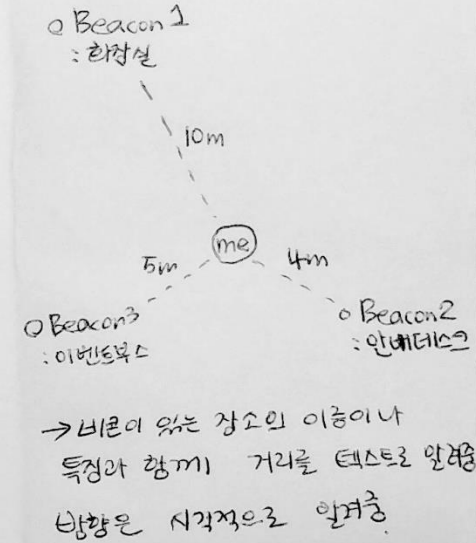 Beacon1
:화장실
10m
me
5m
4m
Beacon3
:이벤트부스
Beacon2
:안내데스크
→비콘이 있는 장소의 이름이나
특징과 함께 거리를 텍스트로 알려줌
방향은 시각적으로 알려줌